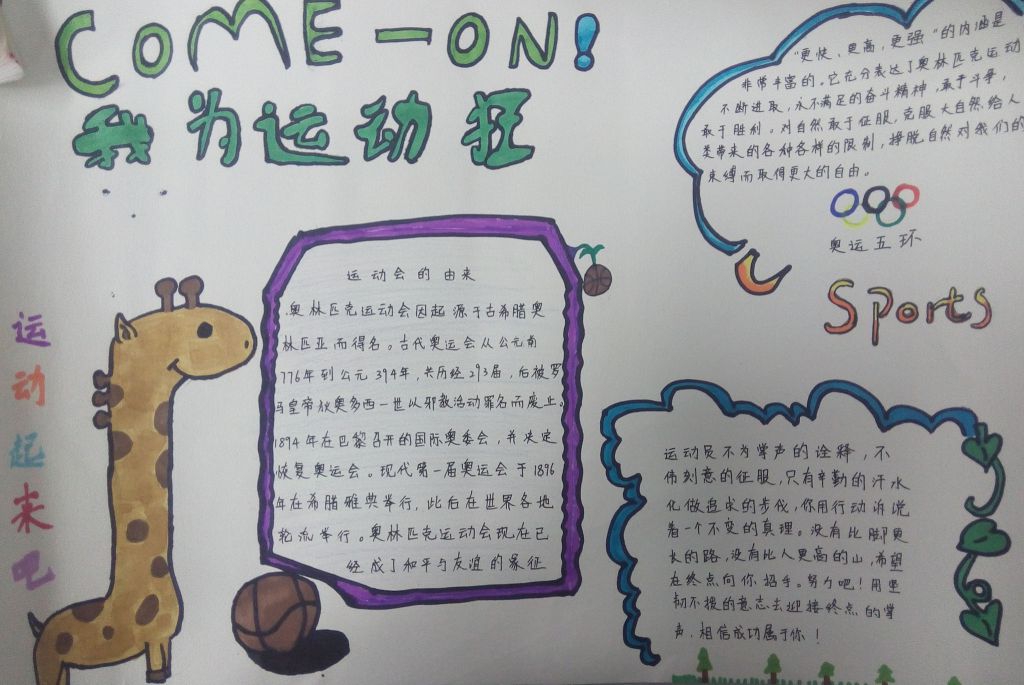 COME-ON!
我为运动狂
"更快、更高、更强"的内涵是
非常丰富的。它充分表达了奥林匹克运动
不断进取,永不满足的奋斗精神,敢于斗争,
敢于胜利。对自然敢于征服,克服大自然给人
类带来的各种各样的限制,挣脱自然对我们的
束缚而取得更大的自由。
奥运五环
Sports
运动起来吧
运动会的由来
奥林匹克运动会因起源于古希腊奥
林匹亚而得名。古代奥运会从公元前
776年到公元394年,共历经293届,后被罗
马皇帝狄奥多西一世以邪教活动罪名而废止。
1894年在巴黎召开的国际奥委会,并决定
恢复奥运会。现代第一届奥运会于1896
年在希腊雅典举行,此后在世界各地
轮流举行。奥林匹克运动会现在已
经成了和平与友谊的象征
运动员不为掌声的诠释,不
伟刻意的征服,只有辛勤的汗水
化做追求的步伐,你用行动诉说
着一个不变的真理。没有比脚更
长的路,没有比人更高的山,希望
在终点向你招手。努力吧!用坚
韧不拔的意志去迎接终点的掌
声.相信成功属于你!